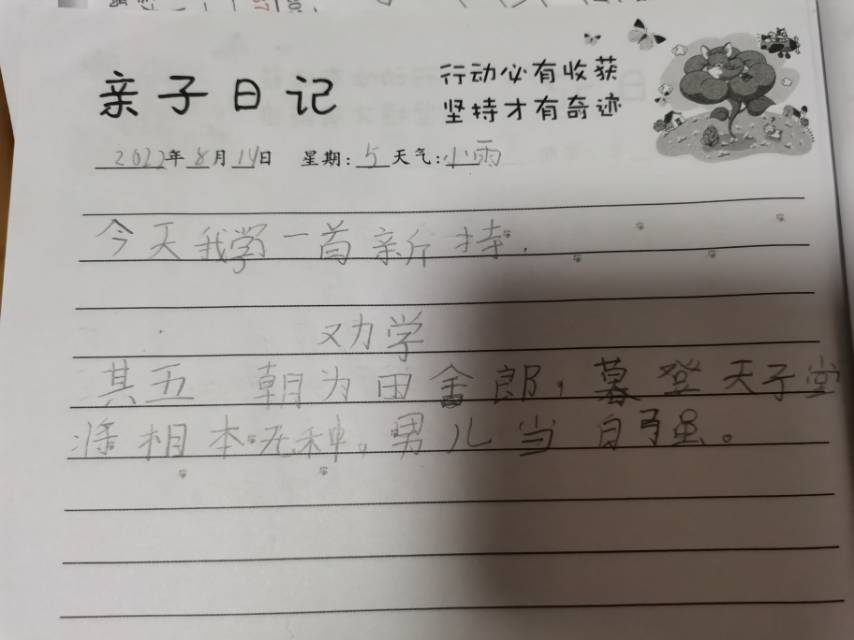 亲子日记
行动必有收获
坚持才有奇迹
2022年8月14日 星期:5天气:小雨
今天我学一首新持.
劝学
其五 朝为田舍郎,暮登天子堂
将相本无种。男儿当自强。